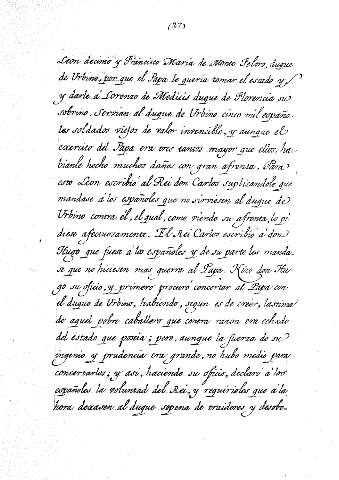 (27)
Leon decimo y Francisco Maria de Monte Feltro, duque
de Urbino, por que el Papa le queria tomar el estado y
y darle á Lorenzo de Medicis duque de Florencia su
sobrino. Servian al duque de Urbino cinco mil españo-
les soldados viejos de valor invencible, y aunque el
exercito del Papa era tres tantos mayor que ellos, ha-
bianle hecho muchos daños con gran afrenta. Para
esto Leon escribió al Rei don Carlos suplicandole que
mandase á los españoles que no sirviesen al duque de
Urbino contra él, el qual, como viendo su afrenta, lo pi-
diese afectuosamente. El Rei Carlos escribió á don
Hugo que fuese á los españoles y de su parte les manda-
se que no hiciesen mas guerra al Papa. Hizo don Hu-
go su oficio, y primero procuró concertar al Papa con
el duque de Urbino, habiendo, segun es de creer, lastima
de aquel pobre caballero que contra razon era echado
del estado que poseia; pero, aunque la fuerza de su
ingenio y prudencia era grande, no hubo medio para
concertarles; y asi, haciendo su oficio, declaró á los
españoles la voluntad del Rei, y requirioles que á la
hora dexasen al duque sopena de traidores y desobe-